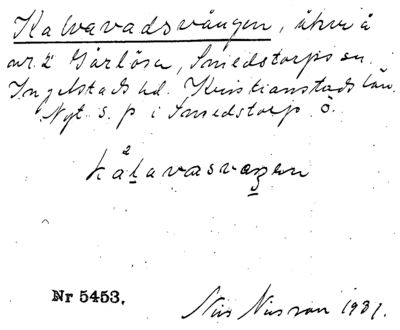 Kalvavadsvången, åker å
nr 2 Gårlösa, Smedstorps sn.
Ingelstads hd. Kristianstads län.
Nyt. s. p i Smedstorp ö.
kålavasvaŋen
Nr 5453.
Nils Nilsson 1931.